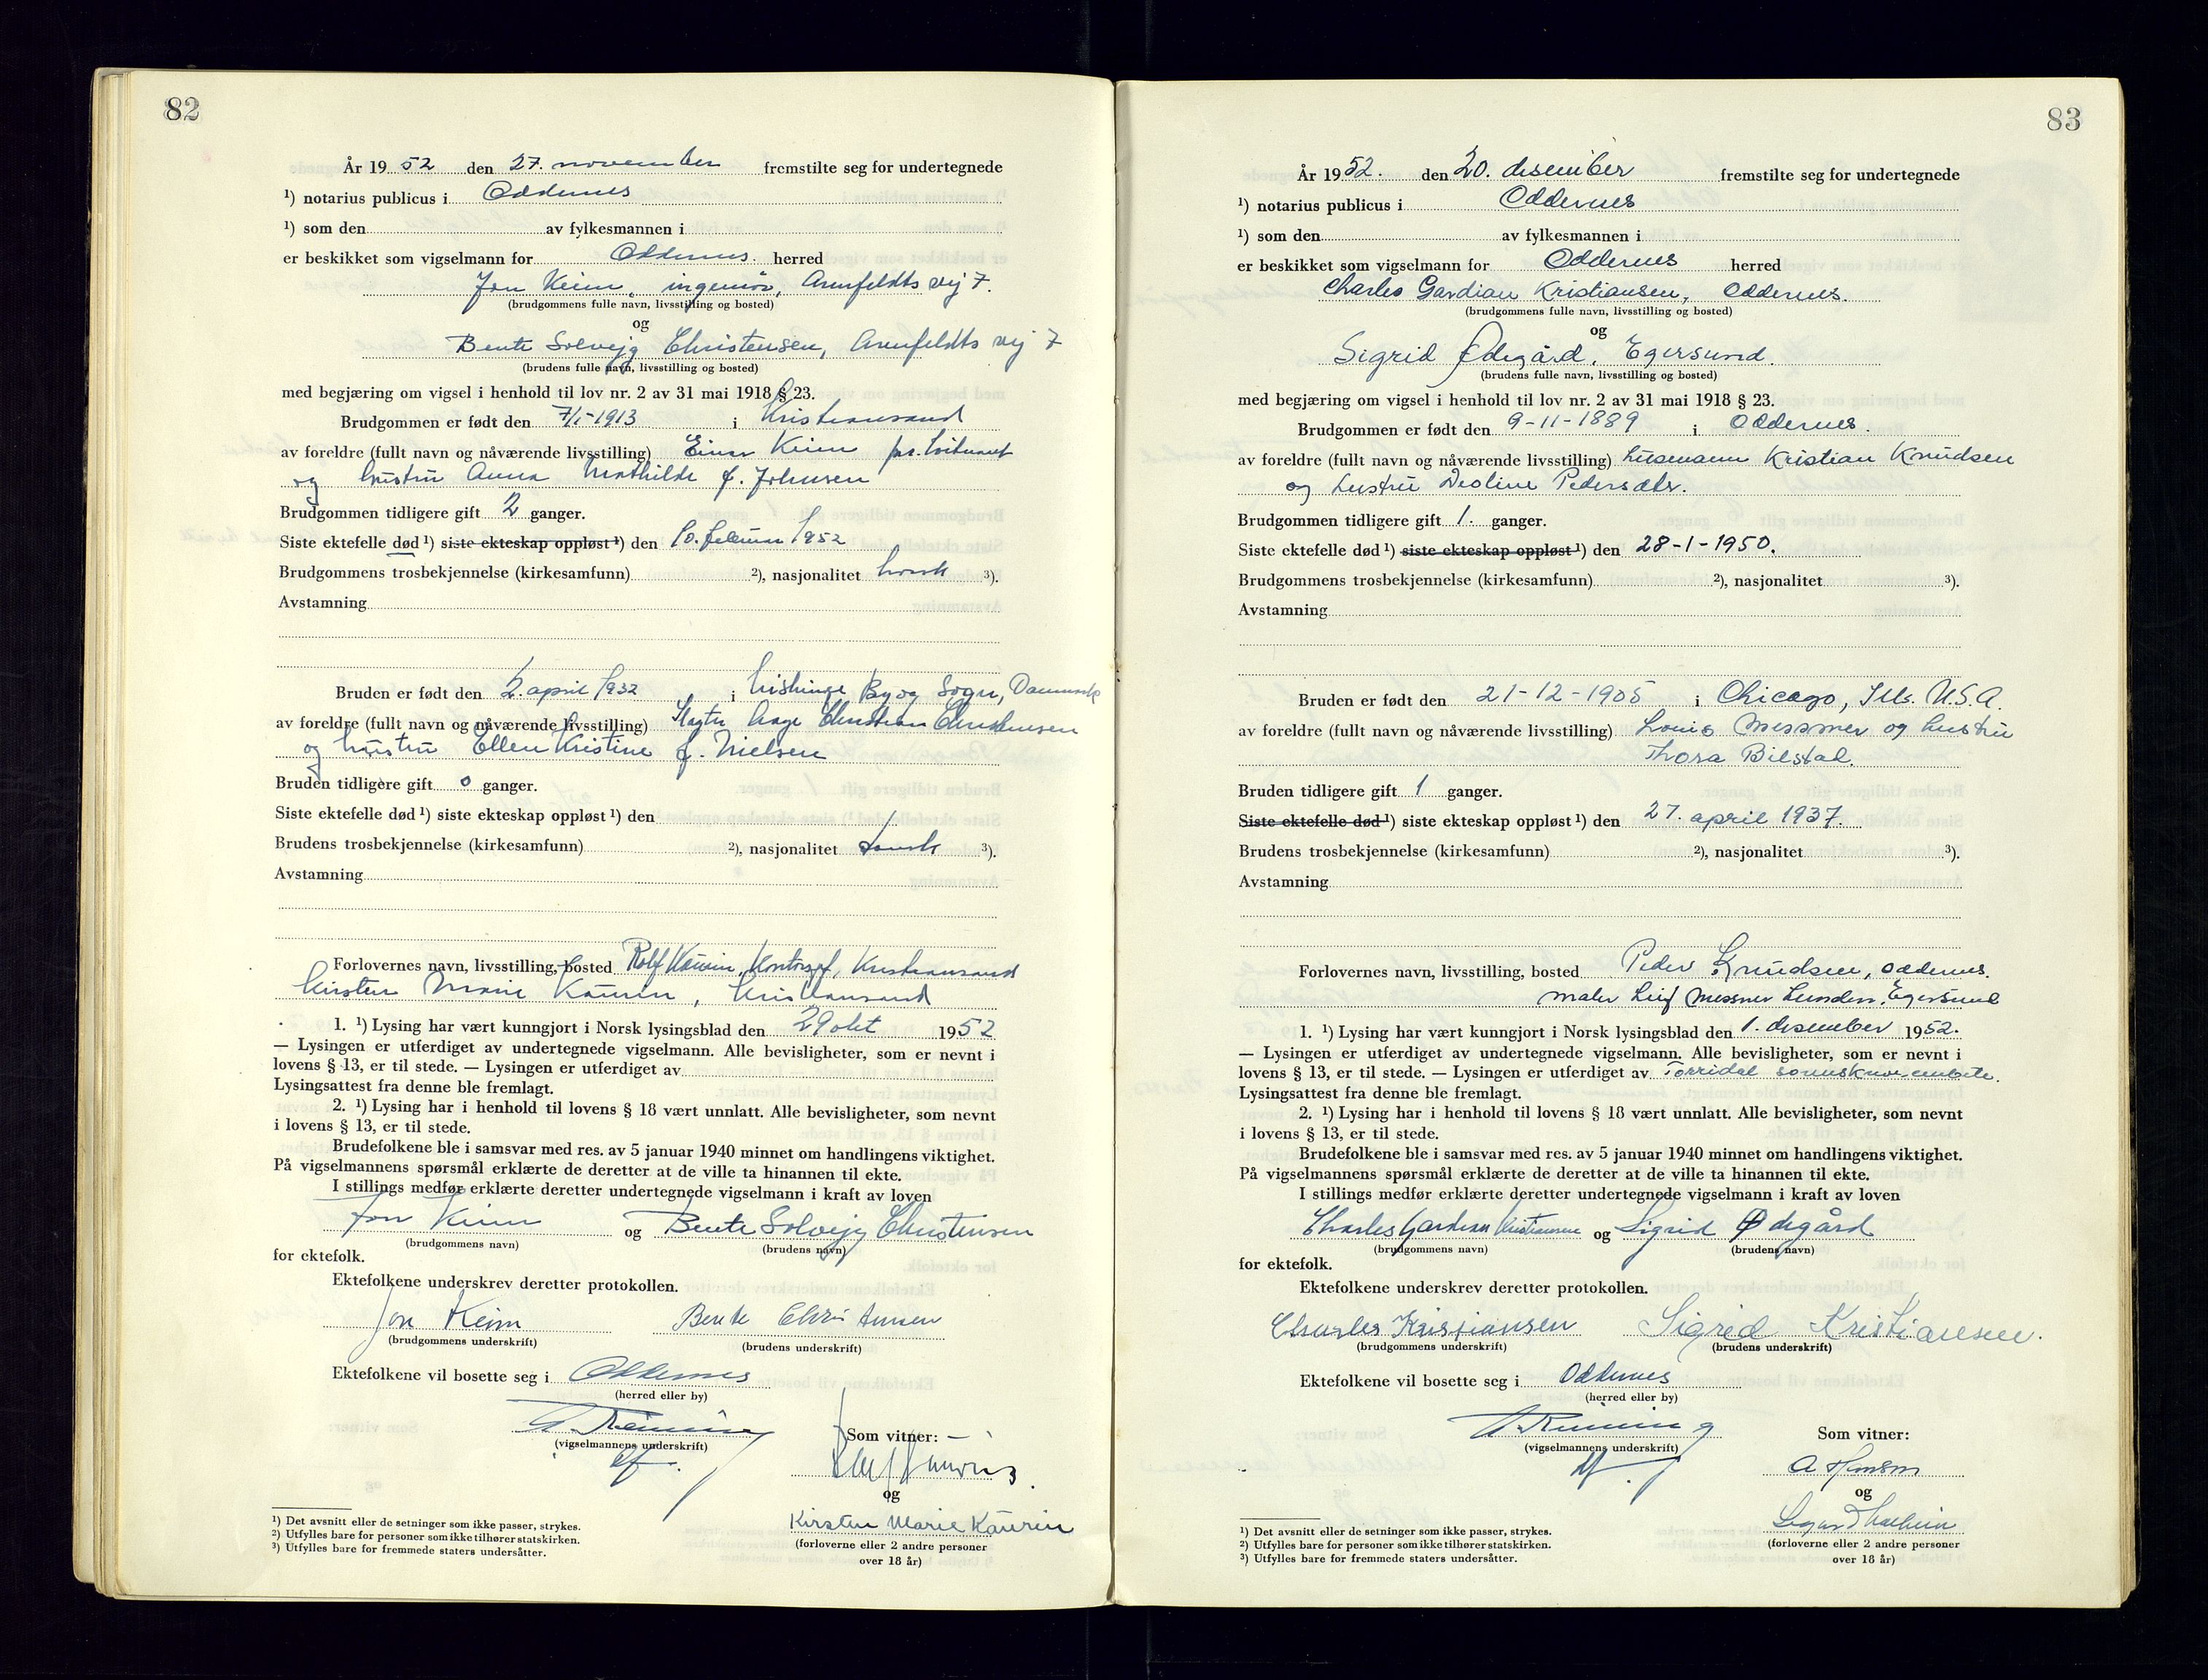 82
År 1952 den 27. november fremstilte seg for undertegnede
¹) notarius publicus i Oddernes
¹) som den av fylkesmannen i
er beskikket som vigselmann for Oddernes. herred
Jon Keim, ingeniør, Arenfeldts vej 7.
(brudgommens fulle navn, livsstilling og bosted)
og
Bente Solvejg Christensen, Arenfeldts vej 7
(brudens fulle navn, livsstilling og bosted)
med begjæring om vigsel i henhold til lov nr. 2 av 31 mai 1918 § 23.
Brudgommen er født den 7/1-1913 i Kristiansand
av foreldre (fullt navn og nåværende livsstilling) Einar Keim
og hustru Anna Mathilde f. Johnsen
Brudgommen tidligere gift 2 ganger.
Siste ektefelle død ¹) siste ekteskap oppløst ¹) den 10. februar 1952
Brudgommens trosbekjennelse (kirkesamfunn) ²), nasjonalitet norsk ³).
Avstamning
Bruden er født den 2. april 1932 i By og Sogn, Danmark
av foreldre (fullt navn og nåværende livsstilling) Slagter Aage Christian Christensen
og hustru Ellen Kristine f. Nielsen
Bruden tidligere gift 0 ganger.
Siste ektefelle død ¹) siste ekteskap oppløst ¹) den
Brudens trosbekjennelse (kirkesamfunn) ²), nasjonalitet dansk ³).
Avstamning
Forlovernes navn, livsstilling, bosted Rolf Kaurin, Kontorsjef, Kristiansand
Kirsten Marie Kaurin, Kristiansand
1. ¹) Lysing har vært kunngjort i Norsk lysingsblad den 29 okt 1952
— Lysingen er utferdiget av undertegnede vigselmann. Alle bevisligheter, som er nevnt i
lovens § 13, er til stede. — Lysingen er utferdiget av
Lysingsattest fra denne ble fremlagt.
2. ¹) Lysing har i henhold til lovens § 18 vært unnlatt. Alle bevisligheter, som nevnt
i lovens § 13, er til stede.
Brudefolkene ble i samsvar med res. av 5 januar 1940 minnet om handlingens viktighet.
På vigselmannens spørsmål erklærte de deretter at de ville ta hinannen til ekte.
I stillings medfør erklærte deretter undertegnede vigselmann i kraft av loven
Jon Keim og Bente Solvejg Christensen
(brudgommens navn) (brudens navn)
for ektefolk.
Ektefolkene underskrev deretter protokollen.
Jon Keim Bente Christensen
(brudgommens underskrift) (brudens underskrift)
Ektefolkene vil bosette seg i Oddernes
(herred eller by)
Som vitner:
(vigselmannens underskrift)
og
Kirsten Marie Kaurin
(forloverne eller 2 andre personer
over 18 år)
¹) Det avsnitt eller de setninger som ikke passer, strykes.
²) Utfylles bare for personer som ikke tilhører statskirken.
³) Utfylles bare for fremmede staters undersåtter.
83
År 1952. den 20. desember fremstilte seg for undertegnede
¹) notarius publicus i Oddernes
¹) som den av fylkesmannen i
er beskikket som vigselmann for Oddernes herred
Charles Gardian Kristiansen, Oddernes.
(brudgommens fulle navn, livsstilling og bosted)
og
Sigrid Ødegård, Egersund.
(brudens fulle navn, livsstilling og bosted)
med begjæring om vigsel i henhold til lov nr. 2 av 31 mai 1918 § 23.
Brudgommen er født den 9-11-1889 i Oddernes.
av foreldre (fullt navn og nåværende livsstilling) husmann Kristian Knudsen
og hustru Deoline Pedersdtr.
Brudgommen tidligere gift 1. ganger.
Siste ektefelle død ¹) siste ekteskap oppløst ¹) den 28-1-1950.
Brudgommens trosbekjennelse (kirkesamfunn) ²), nasjonalitet ³).
Avstamning
Bruden er født den 21-12-1905 i Chicago, Ills. U.S.A.
av foreldre (fullt navn og nåværende livsstilling) Louis Messmer og hustru
Thora Bilstad.
Bruden tidligere gift 1 ganger.
Siste ektefelle død ¹) siste ekteskap oppløst ¹) den 27. april 1937.
Brudens trosbekjennelse (kirkesamfunn) ²), nasjonalitet ³).
Avstamning
Forlovernes navn, livsstilling, bosted Peder Knudsen, Oddernes.
maler Leif Messner Lunden, Egersund
1. ¹) Lysing har vært kunngjort i Norsk lysingsblad den 1. desember 1952.
— Lysingen er utferdiget av undertegnede vigselmann. Alle bevisligheter, som er nevnt i
lovens § 13, er til stede. — Lysingen er utferdiget av Torridal sorenskriverembete.
Lysingsattest fra denne ble fremlagt.
2. ¹) Lysing har i henhold til lovens § 18 vært unnlatt. Alle bevisligheter, som nevnt
i lovens § 13, er til stede.
Brudefolkene ble i samsvar med res. av 5 januar 1940 minnet om handlingens viktighet.
På vigselmannens spørsmål erklærte de deretter at de ville ta hinannen til ekte.
I stillings medfør erklærte deretter undertegnede vigselmann i kraft av loven
Charles Gardian Kristiansen og Sigrid Ødegård
(brudgommens navn) (brudens navn)
for ektefolk.
Ektefolkene underskrev deretter protokollen.
Charles Kristiansen Sigrid Kristiansen.
(brudgommens underskrift) (brudens underskrift)
Ektefolkene vil bosette seg i Oddernes
(herred eller by)
Som vitner:
(vigselmannens underskrift)
og
(forloverne eller 2 andre personer
over 18 år)
¹) Det avsnitt eller de setninger som ikke passer, strykes.
²) Utfylles bare for personer som ikke tilhører statskirken.
³) Utfylles bare for fremmede staters undersåtter.